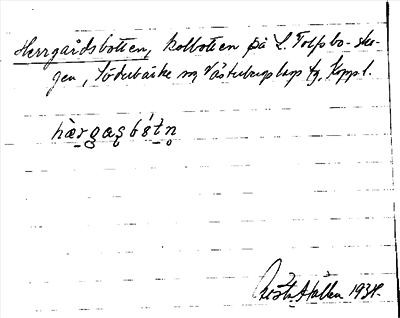 Herrgårdsbotten, kolbotten på L. Tolfsbo-sko-
gen, Söderbärke sn, Västerbergslags tg. Koppl.
hàrgasbótn
Gösta Hallen 1934.